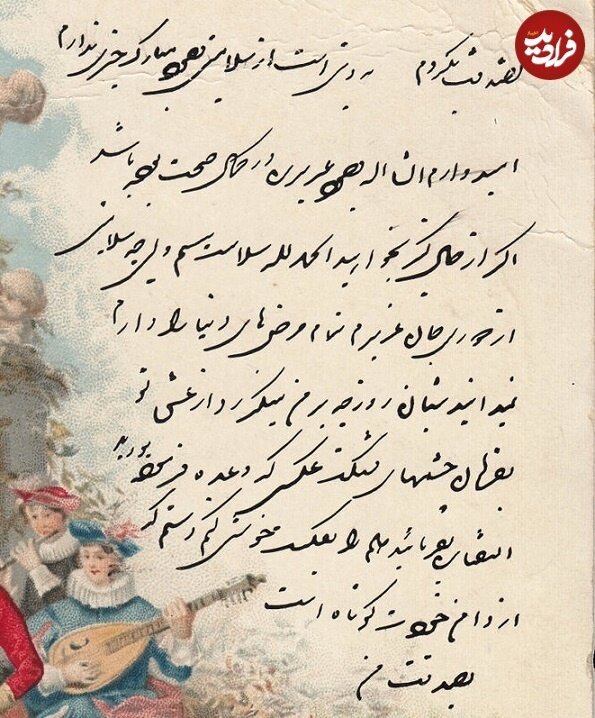 فرادید
تصدقت بگردم مدتی است از سلامتی وجود مبارک خبری ندارم
امیدوارم انشااله وجود عزیزت در کمال صحت بوده باشد
اگر از حال کنیز بخواهید الحمدلله سلامت هستم ولی چه سلامتی
از دوری جان عزیزم تمام مرض های دنیا را دارم
نمیدانید شبان روز چه بر من میگذرد از عشق تو
بقربان چشمهای قشنگت عکسی که وعده فرموده بودید
التفات بفرمائید دلم را بعکست خوش کنم دستم که
از دامن خودت کوتاه است
تصدقت من